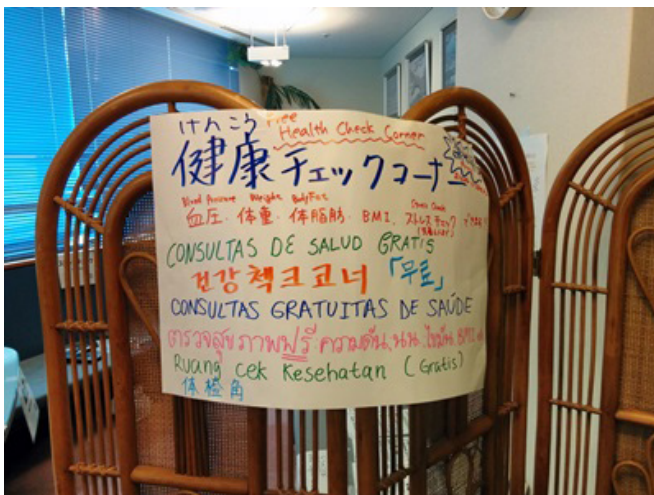 けんこう Free Health Check Corner
健康チェックコーナー
Blood Pressure Weight Body Fat Stress Check
血圧・体重・体脂肪・BMI、ストレスチェック
CONSULTAS DE SALUD GRATIS
건강 첵크 코너 「무료」
CONSULTAS GRATUITAS DE SAÚDE
ตรวจสุขภาพฟรี ความดัน, นน. ไขมัน, BMI
Ruang cek Kesehatan (Gratis)
体检角